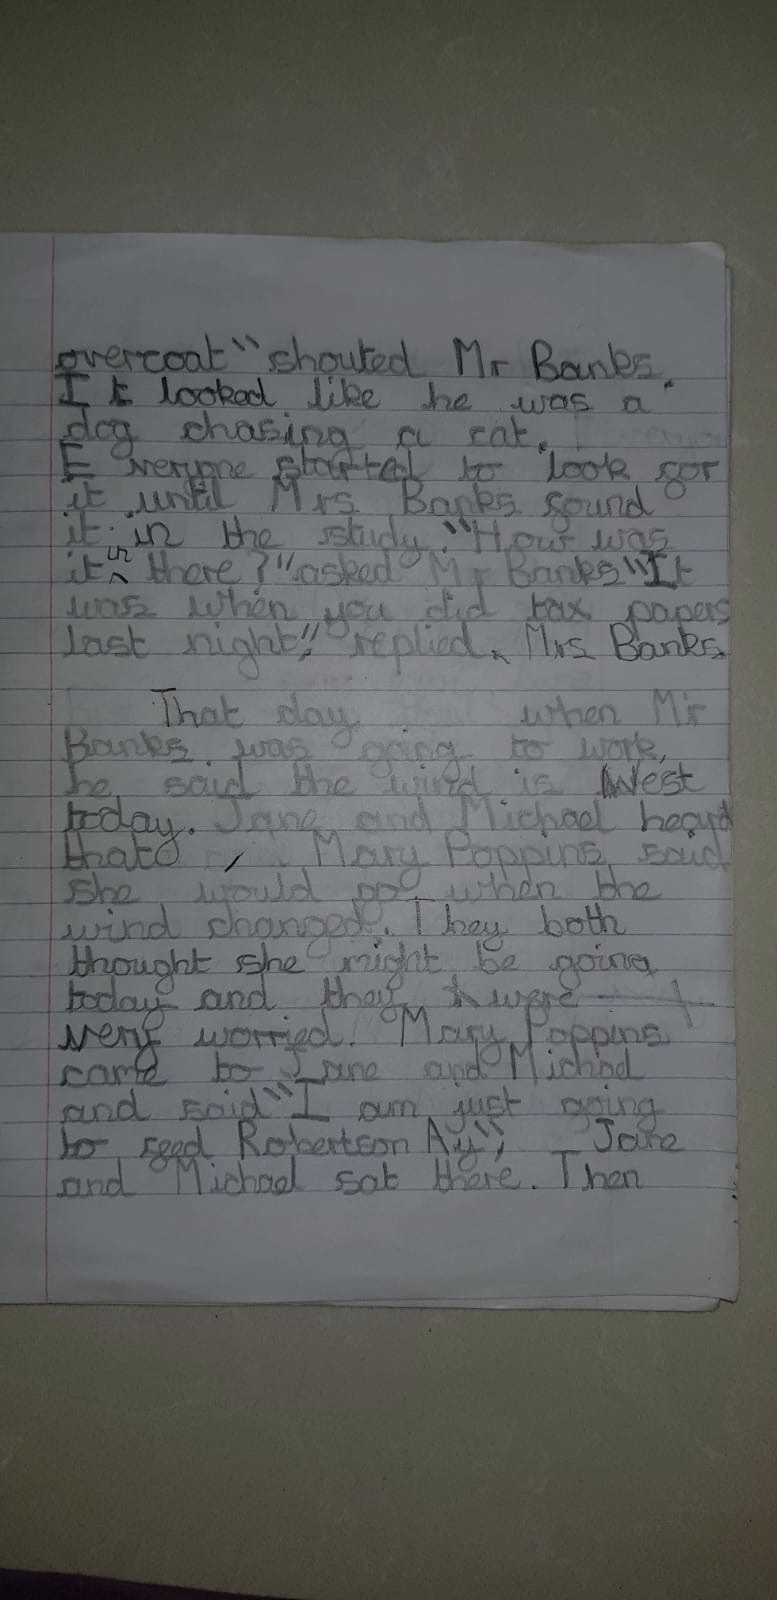 overcoat" shouted Mr Banks.
It looked like he was a
dog chasing a cat.
Everyone started to look for
it until Mrs Banks found
it in the study. "How was
it in there?" asked Mr Banks "It
was when you did tax papers
last night!" replied Mrs Banks.
That day when Mr
Banks was going to work,
he said the wind is West
today. Jane and Michael heard
that, Mary Poppins said
she would go when the
wind changed. They both
thought she might be going
today and they were
very worried. Mary Poppins
came to Jane and Michael
and said "I am just going
to feed Robertson Ay", Jane
and Michael sat there. Then